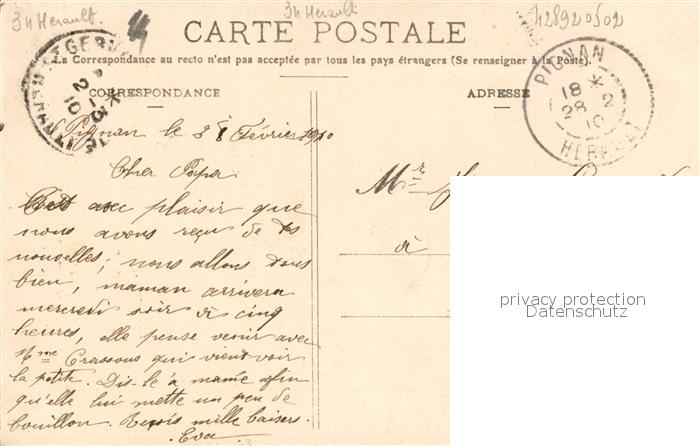 34 Herault.
34 Herault.
428920502
CARTE POSTALE
La Correspondance au recto n'est pas acceptée par tous les pays étrangers (Se renseigner à la Poste).
CORRESPONDANCE
ADRESSE
PIGNAN
18 *
28 - 2
10
HERAULT
Pignan le 28 Février 1910
Cher Papa
C'est avec plaisir que
nous avons reçu de tes
nouvelles; nous allons tous
bien, maman arrivera
mercredi soir à cinq
heures, elle pense venir avec
Mme Crassous qui vient voir
la petite. Dis-le à mamée afin
qu'elle lui mette un peu de
bouillon. Reçois mille baisers.
Eva
Mr
à
privacy protection
Datenschutz